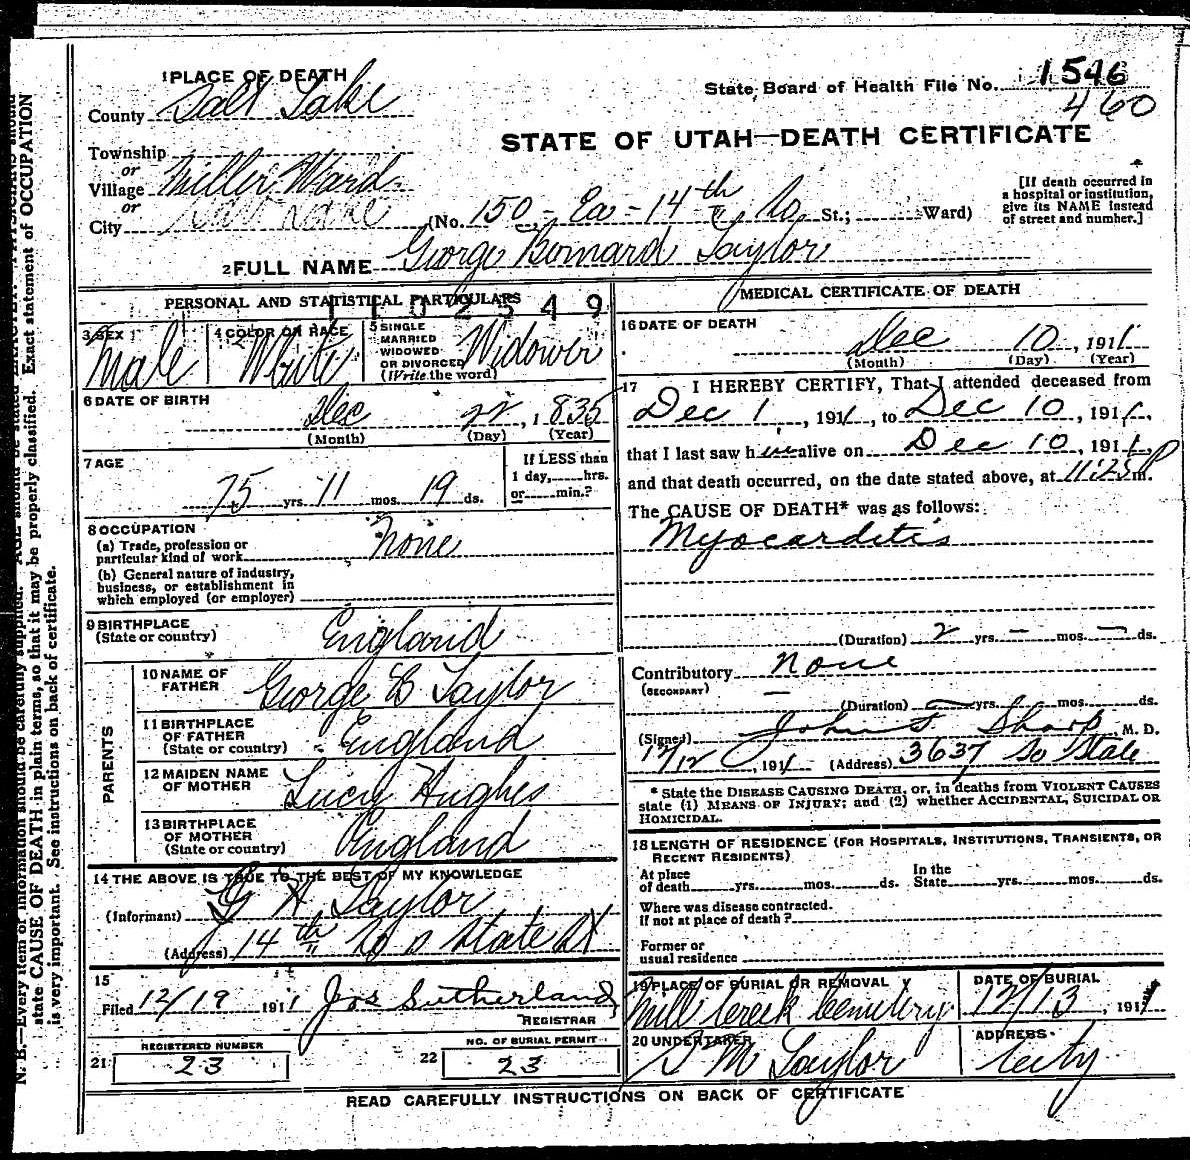 1 PLACE OF DEATH
County Salt Lake
State Board of Health File No. 1546
460
STATE OF UTAH—DEATH CERTIFICATE
Township
or
Village Miller Ward
or
City Salt Lake (No. 150 - Ea - 14th So St.; Ward)
[If death occurred in a hospital or institution, give its NAME instead of street and number.]
2 FULL NAME George Bernard Taylor
PERSONAL AND STATISTICAL PARTICULARS
1102549
3 SEX Male
4 COLOR OR RACE White
5 SINGLE MARRIED WIDOWED OR DIVORCED (Write the word) Widower
6 DATE OF BIRTH
Dec 22, 1835
(Month) (Day) (Year)
7 AGE
75 yrs. 11 mos. 19 ds.
If LESS than 1 day, hrs. or min.?
8 OCCUPATION
(a) Trade, profession or particular kind of work None
(b) General nature of industry, business, or establishment in which employed (or employer)
9 BIRTHPLACE
(State or country) England
PARENTS
10 NAME OF FATHER George B Taylor
11 BIRTHPLACE OF FATHER (State or country) England
12 MAIDEN NAME OF MOTHER Lucy Hughes
13 BIRTHPLACE OF MOTHER (State or country) England
14 THE ABOVE IS TRUE TO THE BEST OF MY KNOWLEDGE
(Informant) G H Taylor
(Address) 14th So & State St
15
Filed 12/19 1911 Jos Sutherland
REGISTRAR
21 REGISTERED NUMBER 23
22 NO. OF BURIAL PERMIT 23
MEDICAL CERTIFICATE OF DEATH
16 DATE OF DEATH
Dec 10, 1911
(Month) (Day) (Year)
17 I HEREBY CERTIFY, That I attended deceased from
Dec 1, 1911, to Dec 10, 1911,
that I last saw him alive on Dec 10, 1911,
and that death occurred, on the date stated above, at 11:25 P m.
The CAUSE OF DEATH* was as follows:
Myocarditis
(Duration) 2 yrs. — mos. — ds.
Contributory None
(SECONDARY) —
(Duration) — yrs. mos. ds.
(Signed) John F Sharp M. D.
12/12, 1911 (Address) 3637 So State
* State the DISEASE CAUSING DEATH, or, in deaths from VIOLENT CAUSES
state (1) MEANS OF INJURY; and (2) whether ACCIDENTAL, SUICIDAL OR
HOMICIDAL.
18 LENGTH OF RESIDENCE (FOR HOSPITALS, INSTITUTIONS, TRANSIENTS, OR
RECENT RESIDENTS)
At place of death yrs. mos. ds. In the State yrs. mos. ds.
Where was disease contracted.
if not at place of death?
Former or
usual residence
19 PLACE OF BURIAL OR REMOVAL Mill Creek Cemetery
DATE OF BURIAL 12/13, 1911
20 UNDERTAKER S M Taylor
ADDRESS City
READ CAREFULLY INSTRUCTIONS ON BACK OF CERTIFICATE
N. B.—Every item of information should be carefully supplied. AGE should be stated EXACTLY. PHYSICIANS should
state CAUSE OF DEATH in plain terms, so that it may be properly classified. Exact statement of OCCUPATION
is very important. See instructions on back of certificate.